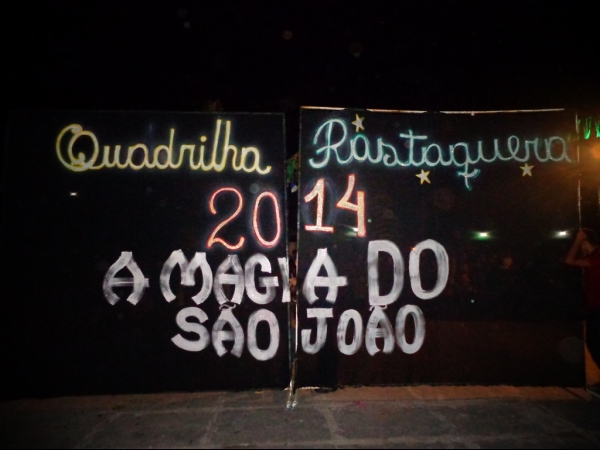 Quadrilha Rastaquera
2014
A MAGIA DO
SÃO JOÃO